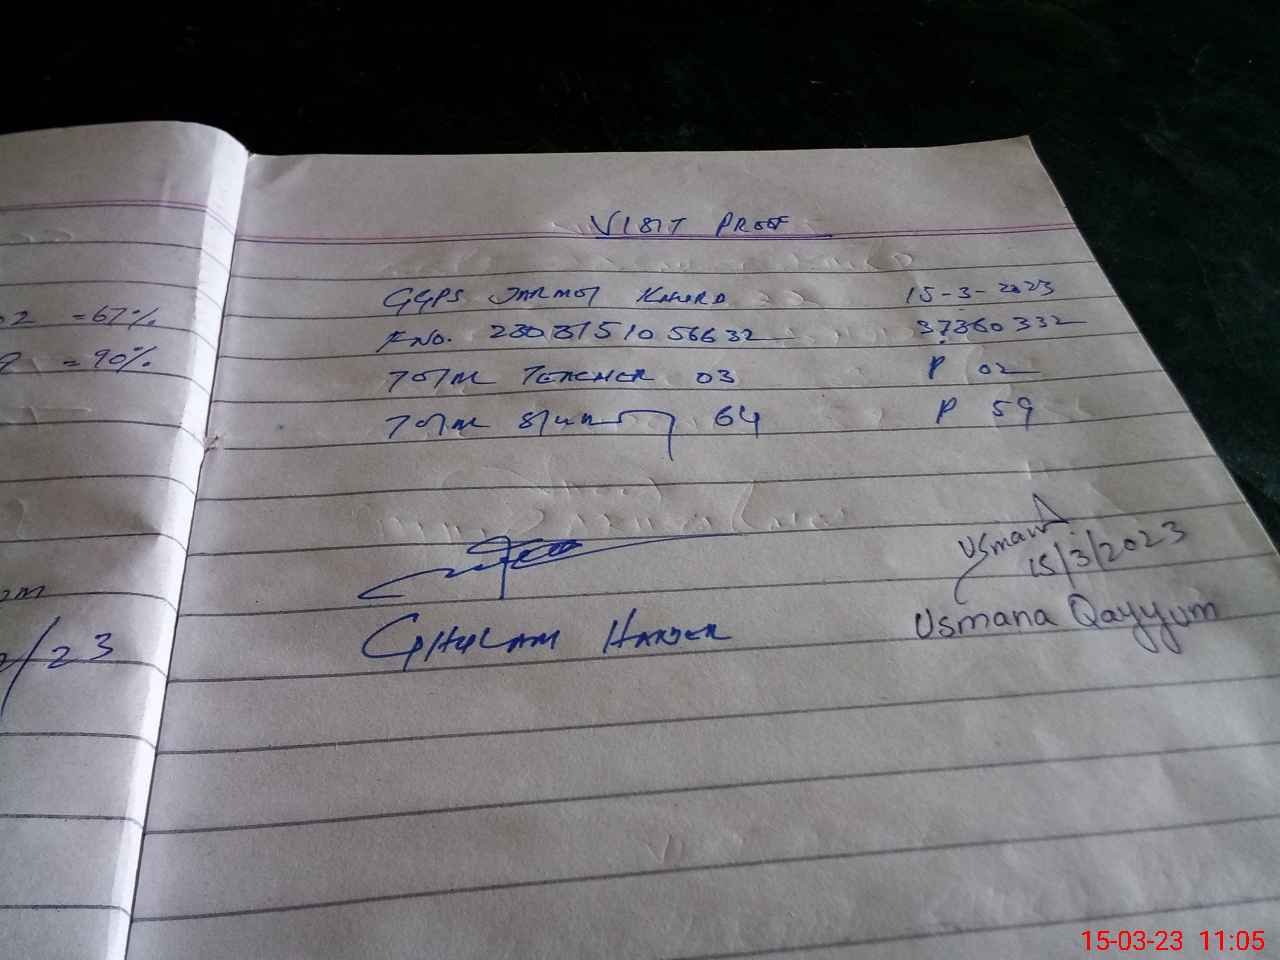 02 =67%
9 =90%
/23
VISIT PROOF
GGPS JARMOT KHURD 15-3-2023
F NO. 23031510 56632 37360332
TOTAL TEACHER 03 P 02
TOTAL STUDENT 64 P 59
Usmana
15/3/2023
GHULAM HAIDER Usmana Qayyum
15-03-23 11:05